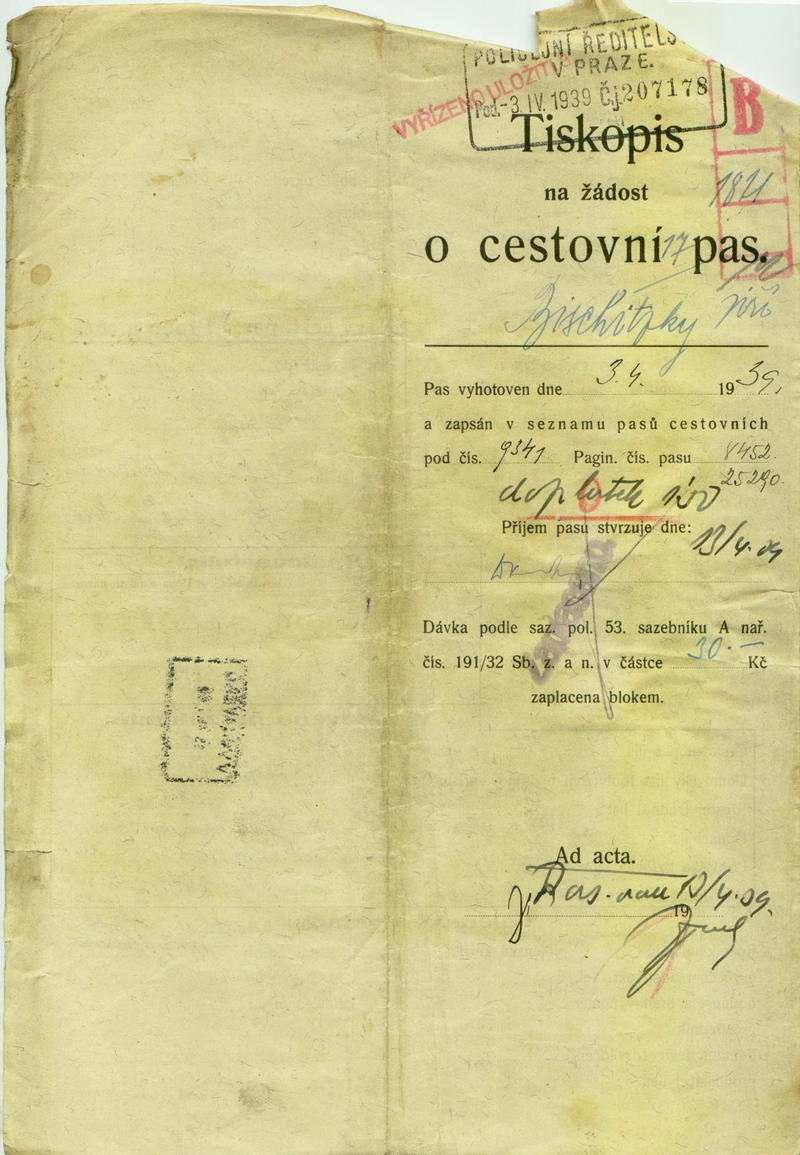 POLICEJNÍ ŘEDITELS
V PRAZE.
Pod. -3. IV. 1939 Čj. 207178
VYŘÍZENO ULOŽIT
B
Tiskopis
na žádost
1821
o cestovní pas.
17
Bischitzky Jiří
Pas vyhotoven dne 3.4. 1939,
a zapsán v seznamu pasů cestovních
pod čís. 9341 Pagin. čís. pasu 8452
25290
doplatek
Příjem pasu stvrzuje dne:
13/4.39
Dávka podle saz. pol. 53. sazebníku A nař.
čís. 191/32 Sb. z. a n. v částce 30.— Kč
zaplacena blokem.
Ad acta.
13/4.39.
19